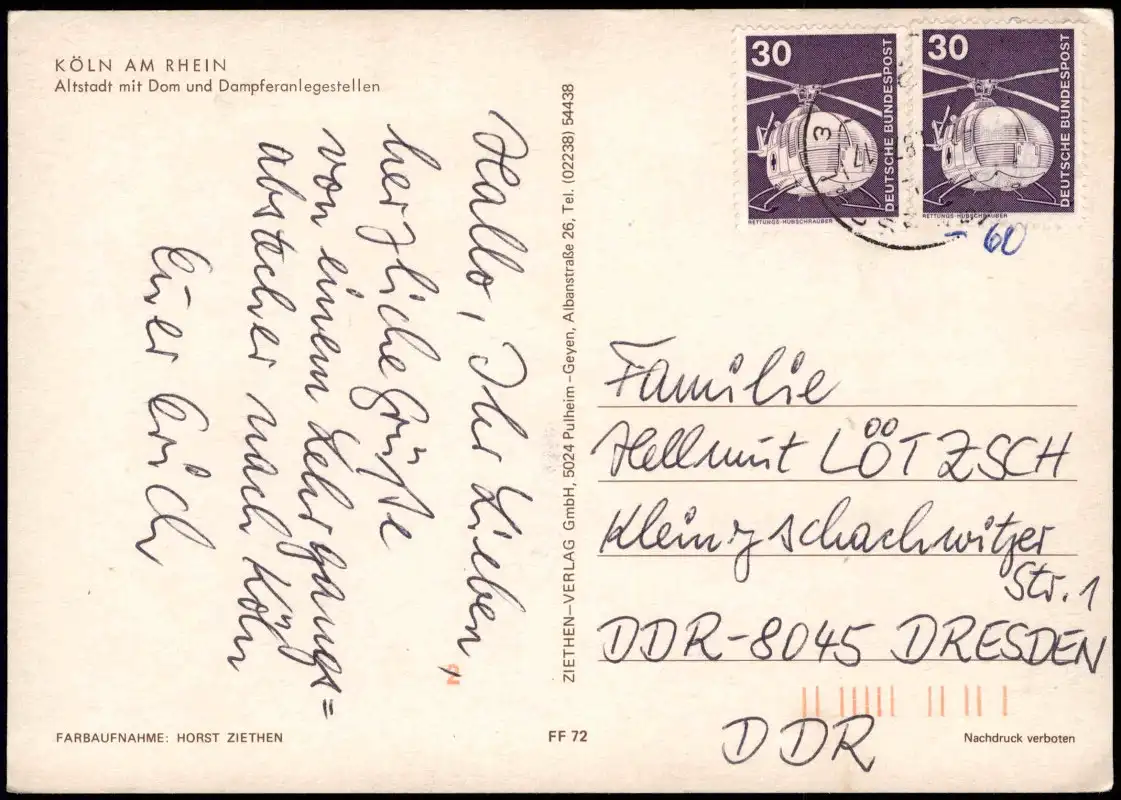 KÖLN AM RHEIN
Altstadt mit Dom und Dampferanlegestellen
Hallo, Ihr Lieben,
herzliche Grüße
von einem Lehrgangs=
abstecher nach Köln
Euer Erich
ZIETHEN–VERLAG GmbH, 5024 Pulheim–Geyen, Albanstraße 26, Tel. (02238) 54438
30
DEUTSCHE BUNDESPOST
RETTUNGS-HUBSCHRAUBER
30
DEUTSCHE BUNDESPOST
RETTUNGS-HUBSCHRAUBER
60
Familie
Hellmut LÖTZSCH
Kleinzschachwitzer
Str. 1
DDR-8045 DRESDEN
DDR
FARBAUFNAHME: HORST ZIETHEN
FF 72
Nachdruck verboten